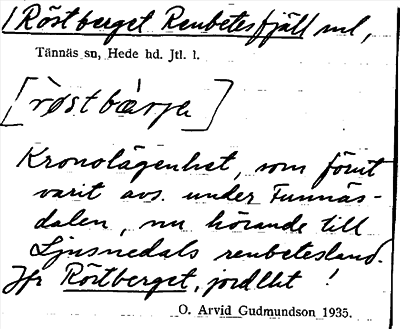 Röstberget Renbetesfjäll nl,
Tännäs sn, Hede hd. Jtl. l.
[røstbærje]
Kronolägenhet, som förut
varit avs. under Funnäs-
dalen, nu hörande till
Ljusnedals renbetesland.
Jfr Röstberget, jordlht !
O. Arvid Gudmundson 1935.